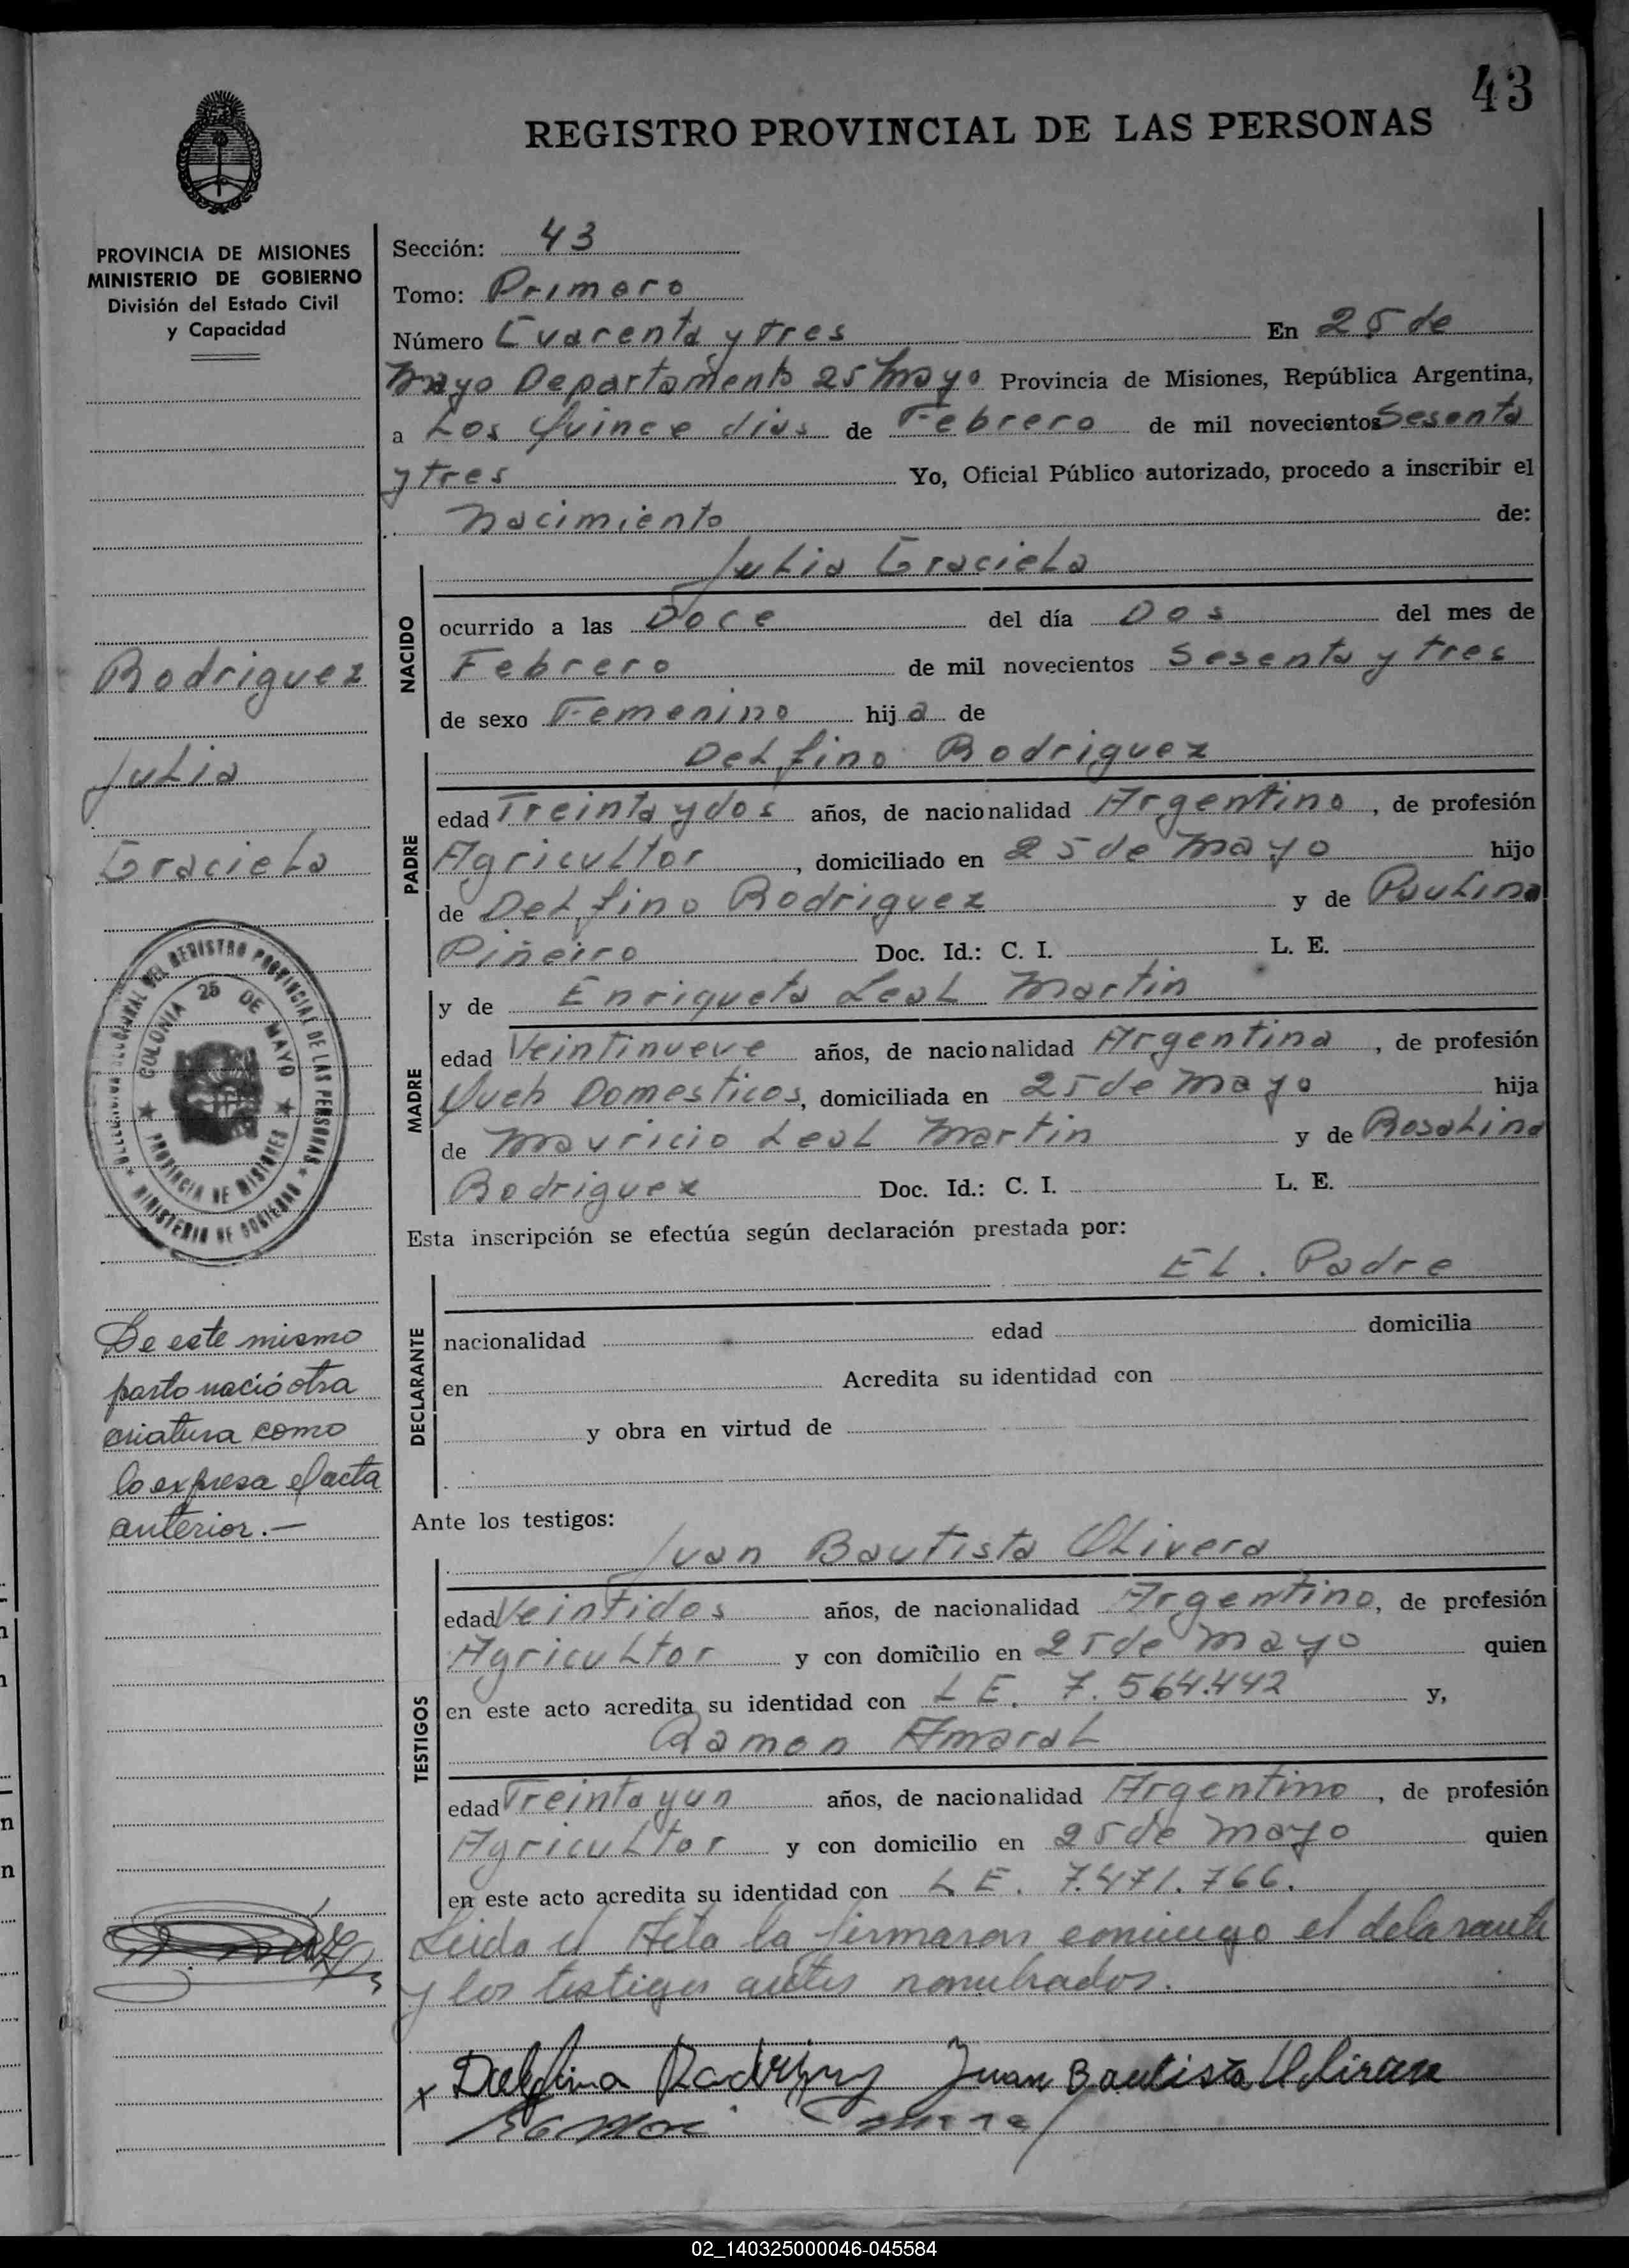 43
REGISTRO PROVINCIAL DE LAS PERSONAS
PROVINCIA DE MISIONES
MINISTERIO DE GOBIERNO
División del Estado Civil
y Capacidad
Rodriguez
Julia
Graciela
REGISTRO PROVINCIAL DE LAS PERSONAS
MINISTERIO DE GOBIERNO
COLONIA 25 DE MAYO
PROVINCIA DE MISIONES
De este mismo
parto nació otra
criatura como
lo expresa el acta
anterior.—
Sección: 43
Tomo: Primero
Número Cuarenta y tres En 25 de
Mayo Departamento 25 Mayo Provincia de Misiones, República Argentina,
a Los Quince dias de Febrero de mil novecientos Sesenta
y tres Yo, Oficial Público autorizado, procedo a inscribir el
Nacimiento de:
NACIDO
Julia Graciela
ocurrido a las Doce del día Dos del mes de
Febrero de mil novecientos Sesenta y tres
de sexo Femenino hija de
PADRE
Delfino Rodriguez
edad Treinta y dos años, de nacionalidad Argentino, de profesión
Agricultor, domiciliado en 25 de Mayo hijo
de Delfino Rodriguez y de Paulina
Piñeiro Doc. Id.: C. I. L. E.
MADRE
y de Enriqueta Leal Martin
edad Veintinueve años, de nacionalidad Argentina, de profesión
Queh Domesticos, domiciliada en 25 de Mayo hija
de Mauricio Leal Martin y de Rosalina
Rodriguez Doc. Id.: C. I. L. E.
Esta inscripción se efectúa según declaración prestada por:
DECLARANTE
El. Padre
nacionalidad edad domicilia
en Acredita su identidad con
y obra en virtud de
Ante los testigos:
TESTIGOS
Juan Bautista Olivera
edad Veintidos años, de nacionalidad Argentino, de profesión
Agricultor y con domicilio en 25 de Mayo quien
en este acto acredita su identidad con L E. 7.564.442 y,
Ramon Amaral
edad Treinta y un años, de nacionalidad Argentino, de profesión
Agricultor y con domicilio en 25 de Mayo quien
en este acto acredita su identidad con L E. 7.471.766.
Leida el Acta la firmaron conmigo el delarante
y los testigos antes nombrados.
x Delfino Rodriguez Juan Bautista Olivera
Ramon Amaral
02_140325000046-045584